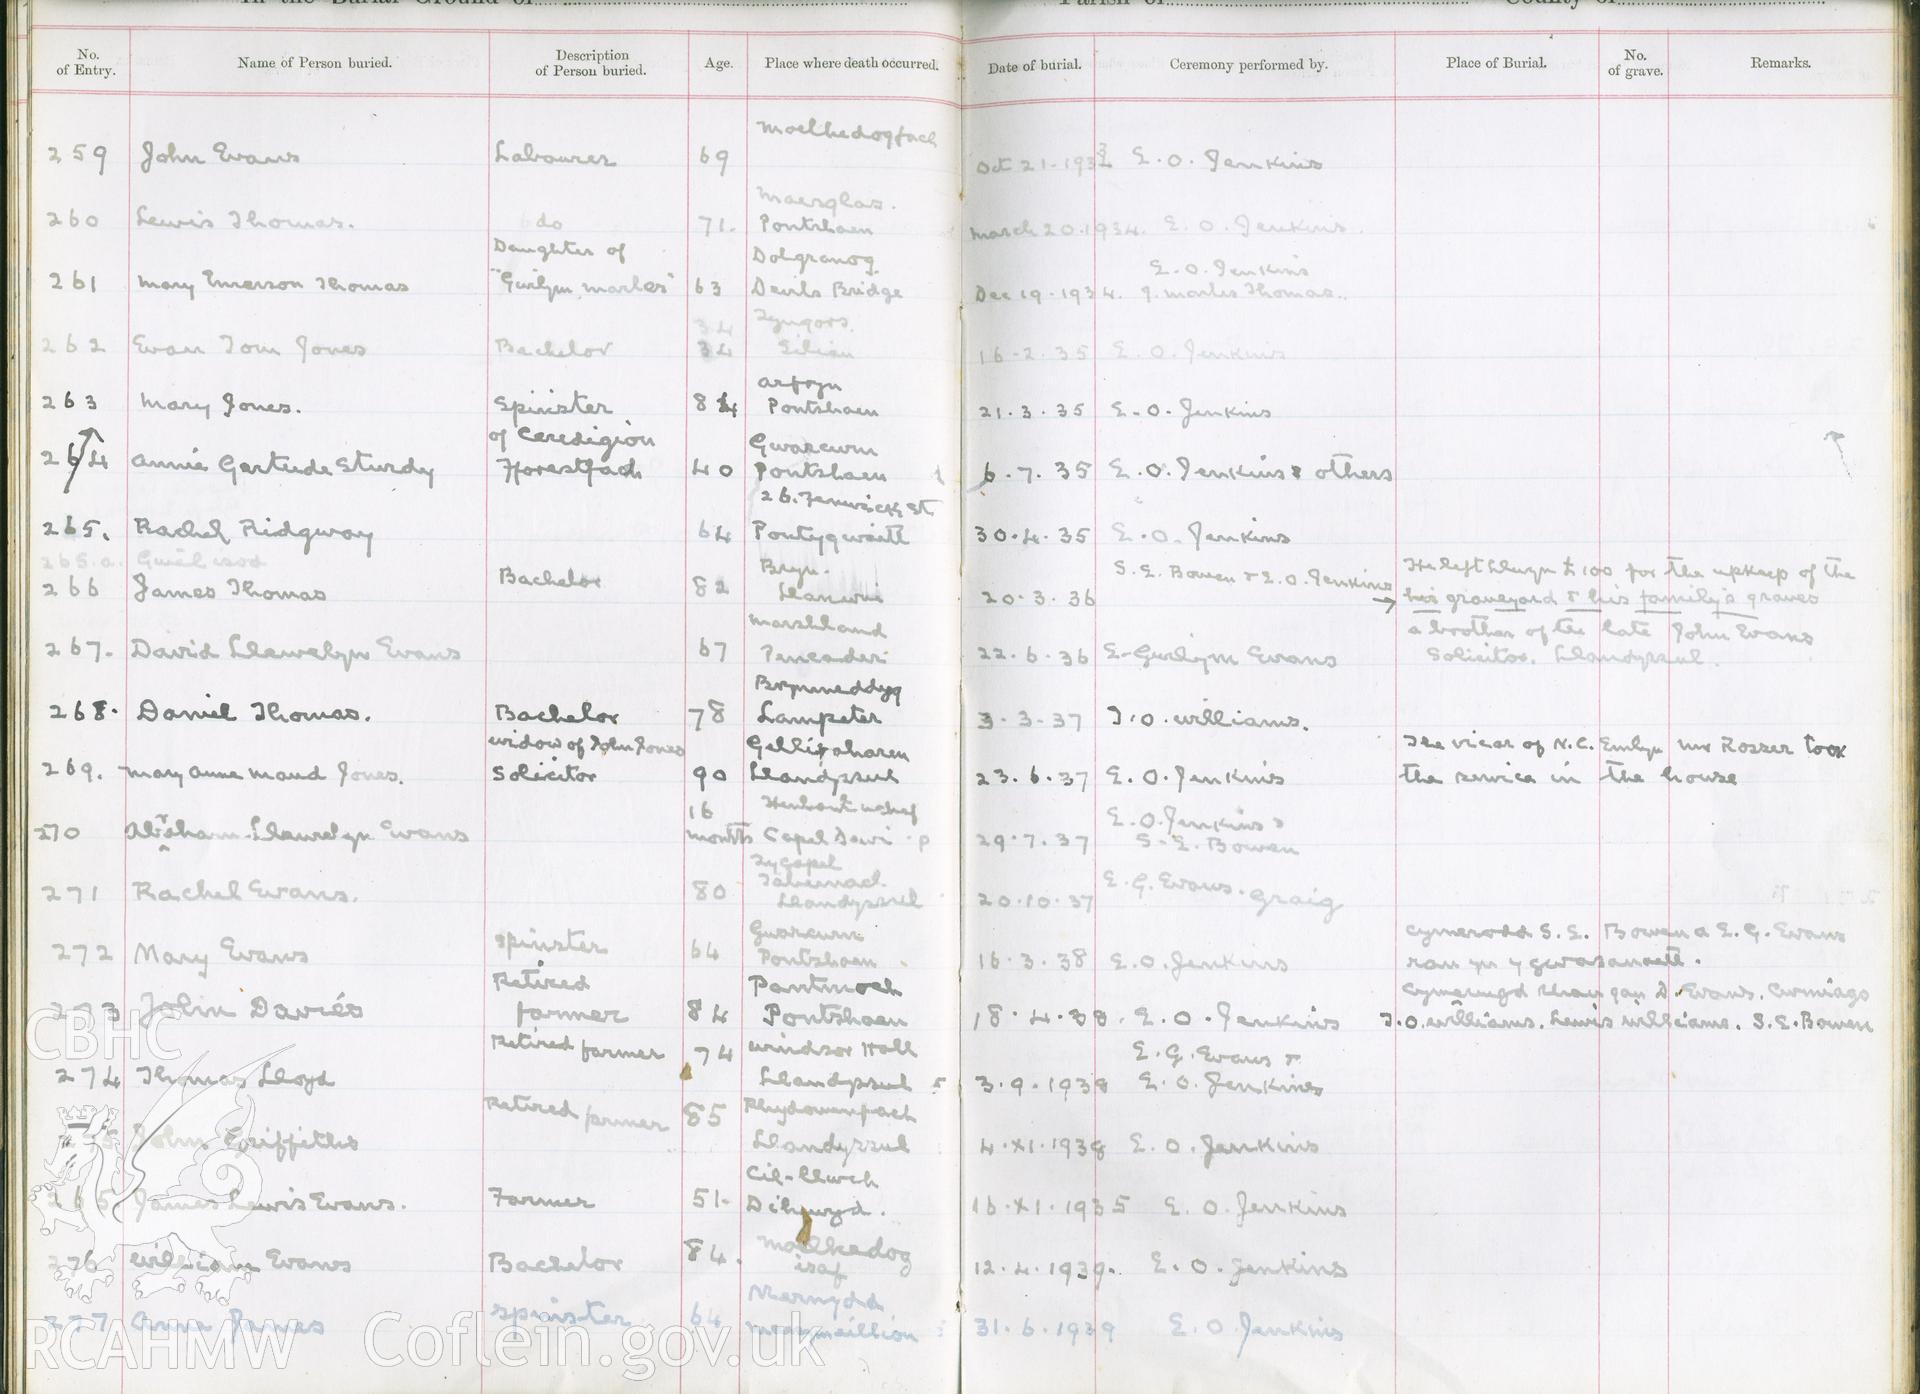 In the Burial Ground of Parish of County of
No. of Entry. Name of Person buried. Description of Person buried. Age. Place where death occurred. Date of burial. Ceremony performed by. Place of Burial. No. of grave. Remarks.
Moelhedogfach
259 John Evans Labourer 69 Oct 21-193 E. O. Jenkins
Maesglas.
260 Lewis Thomas. do 71. Pontshaen March 20.1934. E. O. Jenkins.
Daughter of Dolgranog. E. O. Jenkins
261 Mary Emerson Thomas "Gwilym Marles" 63 Devils Bridge Dec 19.1934. J. Marles Thomas.
34
262 Evan Tom Jones Bachelor 34 Silian 16-2.35 E. O. Jenkins
Arfryn
263 Mary Jones. Spinster 84 Pontshaen 21.3.35 E. O. Jenkins
of Ceredigion Gwarcwm
264 Annie Gertrude Sturdy Fforestfach 40 Pontshaen 6.7.35 E. O. Jenkins & others
26. Fenwick St
265. Rachel Ridgway 64 Pontygwaith 30.4.35 E. O. Jenkins
265.a. Gwêl isod Bryn. S. E. Bowen & E. O. Jenkins He left Llwyn £100 for the upkeep of the
266 James Thomas Bachelor 82 Llanwni 20.3.36 → his graveyard & his family's graves
Marshland a brother of the late John Evans
267. David Llewelyn Evans 67 Pencader 22.6.36 E. Gwilym Evans Solicitor. Llandyssul.
Brynmeddyg
268. Daniel Thomas. Bachelor 78 Lampeter 3-3-37 T. O. Williams.
widow of John Jones Gellifaharen The vicar of N.C. Emlyn Mr Rosser took
269. Mary Anne Maud Jones. Solicitor 90 Llandyssul 23.6.37 E. O. Jenkins the service in the house
16 E. O. Jenkins &
270 Abraham Llewelyn Evans months Capel Dewi 29.7.37 S. E. Bowen
Tycapel
Tabernacl E. G. Evans. Graig
271 Rachel Evans. 80 Llandyssul 20.10.37
Gwarcwm Cymerodd S. E. Bowen a E. G. Evans
272 Mary Evans Spinster 64 Pontshaen 16.3.38 E. O. Jenkins ran yn y gwasanaeth.
Retired Pantmoch Cymerwyd rhan gan D. Evans.
273 John Davies farmer 84 Pontshaen 18.4.38. E. O. Jenkins T. O. Williams. Lewis Williams. S. E. Bowen
Retired farmer 74 Windsor Hall E. G. Evans &
274 Thomas Lloyd Llandyssul 3.9.1938 E. O. Jenkins
Retired farmer 85 Rhydowenfach
275 John Griffiths Llandyssul 4.XI.1938 E. O. Jenkins
Cil-llwch
265 James Lewis Evans. Farmer 51. Dihewyd. 16.XI.1935 E. O. Jenkins
276 William Evans Bachelor 84. Moelhedog isaf 12.4.1939. E. O. Jenkins
277 Anna James Spinster 64 31.6.1939 E. O. Jenkins
CBHC
RCAHMW Coflein.gov.uk